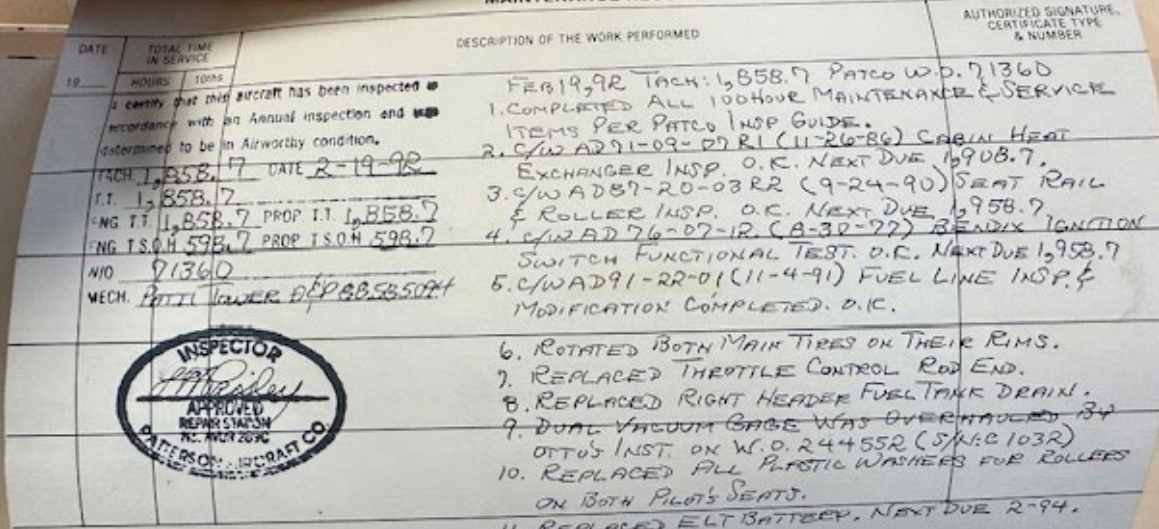 DATE
TOTAL TIME
IN SERVICE
DESCRIPTION OF THE WORK PERFORMED
AUTHORIZED SIGNATURE,
CERTIFICATE TYPE
& NUMBER
19
HOURS 10ths
I certify that this aircraft has been inspected in
accordance with an Annual inspection and was
determined to be in Airworthy condition.
TACH 1,858.7 DATE 2-19-92
T.T. 1,858.7
ENG T.T. 1,858.7 PROP T.T. 1,858.7
ENG T.S.O.H 598.7 PROP T.S.O.H 598.7
W/O 71360
MECH. PATTI TOWER A&P
INSPECTOR
APPROVED
REPAIR STATION
PATTERSON AIRCRAFT CO.
FEB 19,92 TACH: 1,858.7 PATCO W.O. 71360
1. COMPLETED ALL 100 HOUR MAINTENANCE & SERVICE
ITEMS PER PATCO INSP GUIDE.
2. C/W AD71-09-07R1 (11-26-86) CABIN HEAT
EXCHANGER INSP. O.K. NEXT DUE 1,908.7.
3. C/W AD87-20-03R2 (9-24-90) SEAT RAIL
& ROLLER INSP. O.K. NEXT DUE 1,958.7
4. C/W AD 76-07-12 (8-30-77) BENDIX IGNITION
SWITCH FUNCTIONAL TEST. O.K. NEXT DUE 1,958.7
5. C/W AD91-22-01 (11-4-91) FUEL LINE INSP. &
MODIFICATION COMPLETED. O.K.
6. ROTATED BOTH MAIN TIRES ON THEIR RIMS.
7. REPLACED THROTTLE CONTROL ROD END.
8. REPLACED RIGHT HEADER FUEL TANK DRAIN.
9. DUAL VACUUM GAGE WAS OVERHAULED BY
OTTO'S INST. ON W.O. 244552 (S/N:C103R)
10. REPLACED ALL PLASTIC WASHERS FOR ROLLERS
ON BOTH PILOT'S SEATS.
11. REPLACED ELT BATTERY. NEXT DUE 2-94.